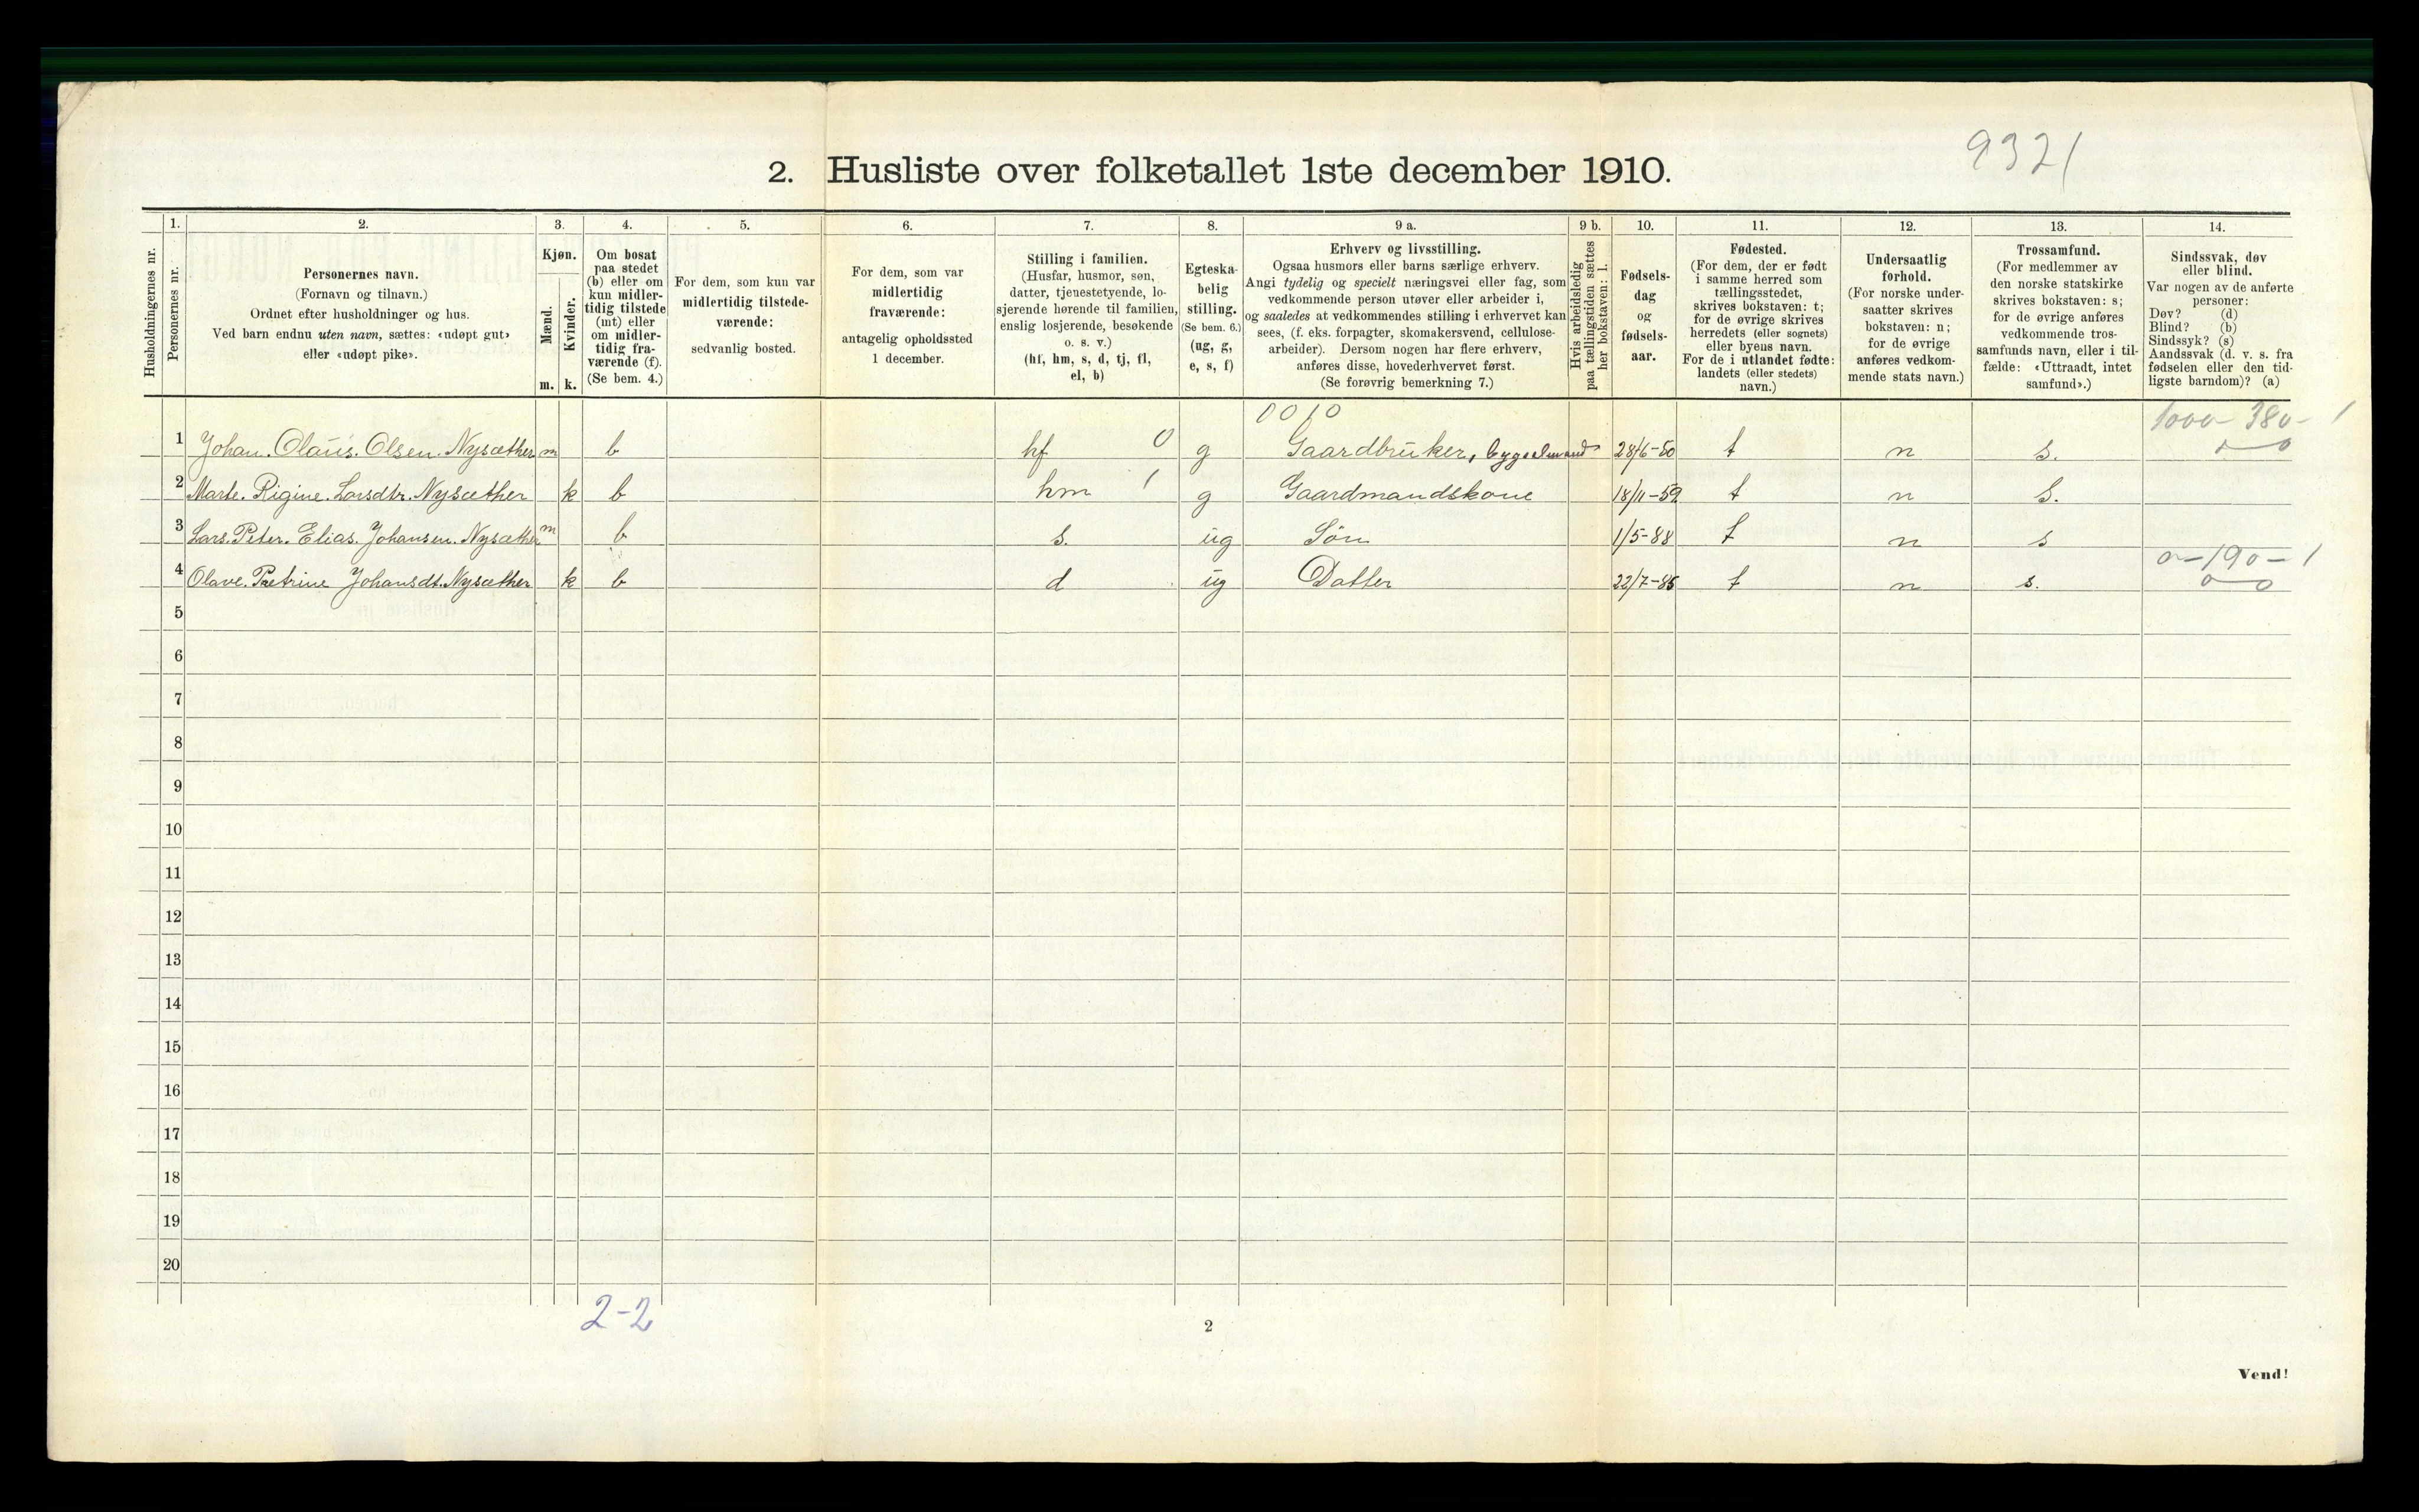 9321
2. Husliste over folketallet 1ste december 1910.
Husholdningernes nr.
1.
Personernes nr.
2.
Personernes navn.
(Fornavn og tilnavn.)
Ordnet efter husholdninger og hus.
Ved barn endnu uten navn, sættes: «udøpt gut»
eller «udøpt pike».
3.
Kjøn.
Mænd.
Kvinder.
m. k.
4.
Om bosat
paa stedet
(b) eller om
kun midler-
tidig tilstede
(mt) eller
om midler-
tidig fra-
værende (f).
(Se bem. 4.)
5.
For dem, som kun var
midlertidig tilstede-
værende:
sedvanlig bosted.
6.
For dem, som var
midlertidig
fraværende:
antagelig opholdssted
1 december.
7.
Stilling i familien.
(Husfar, husmor, søn,
datter, tjenestetyende, lo-
sjerende hørende til familien,
enslig losjerende, besøkende
o. s. v.)
(hf, hm, s, d, tj, fl,
el, b)
8.
Egteska-
belig
stilling.
(Se bem. 6.)
(ug, g,
e, s, f)
9 a.
Erhverv og livsstilling.
Ogsaa husmors eller barns særlige erhverv.
Angi tydelig og specielt næringsvei eller fag, som
vedkommende person utøver eller arbeider i,
og saaledes at vedkommendes stilling i erhvervet kan
sees, (f. eks. forpagter, skomakersvend, cellulose-
arbeider). Dersom nogen har flere erhverv,
anføres disse, hovederhvervet først.
(Se forøvrig bemerkning 7.)
9 b.
Hvis arbeidsledig
paa tællingstiden sættes
her bokstaven: l.
10.
Fødsels-
dag
og
fødsels-
aar.
11.
Fødested.
(For dem, der er født
i samme herred som
tællingsstedet,
skrives bokstaven: t;
for de øvrige skrives
herredets (eller sognets)
eller byens navn.
For de i utlandet fødte:
landets (eller stedets)
navn.)
12.
Undersaatlig
forhold.
(For norske under-
saatter skrives
bokstaven: n;
for de øvrige
anføres vedkom-
mende stats navn.)
13.
Trossamfund.
(For medlemmer av
den norske statskirke
skrives bokstaven: s;
for de øvrige anføres
vedkommende tros-
samfunds navn, eller i til-
fælde: «Uttraadt, intet
samfund».)
14.
Sindssvak, døv
eller blind.
Var nogen av de anførte
personer:
Døv? (d)
Blind? (b)
Sindssyk? (s)
Aandssvak (d. v. s. fra
fødselen eller den tid-
ligste barndom)? (a)
0010 1000-380-1
1 Johan. Olaus. Olsen. Nysæther m b hf 0 g Gaardbruker, bygselmand 28/6-50 t n s.
2 Marte. Rigine. Larsdtr. Nysæther k b hm 1 g Gaardmandskone 18/11-52 t n s.
3 Lars. Peter. Elias. Johansen. Nysæther m b s. ug Søn 1/5-88 t n s
0-190-1
4 Olave. Petrine Johansdt. Nysæther k b d ug Datter 22/7-85 t n s.
5
6
7
8
9
10
11
12
13
14
15
16
17
18
19
20
2-2
2
Vend!